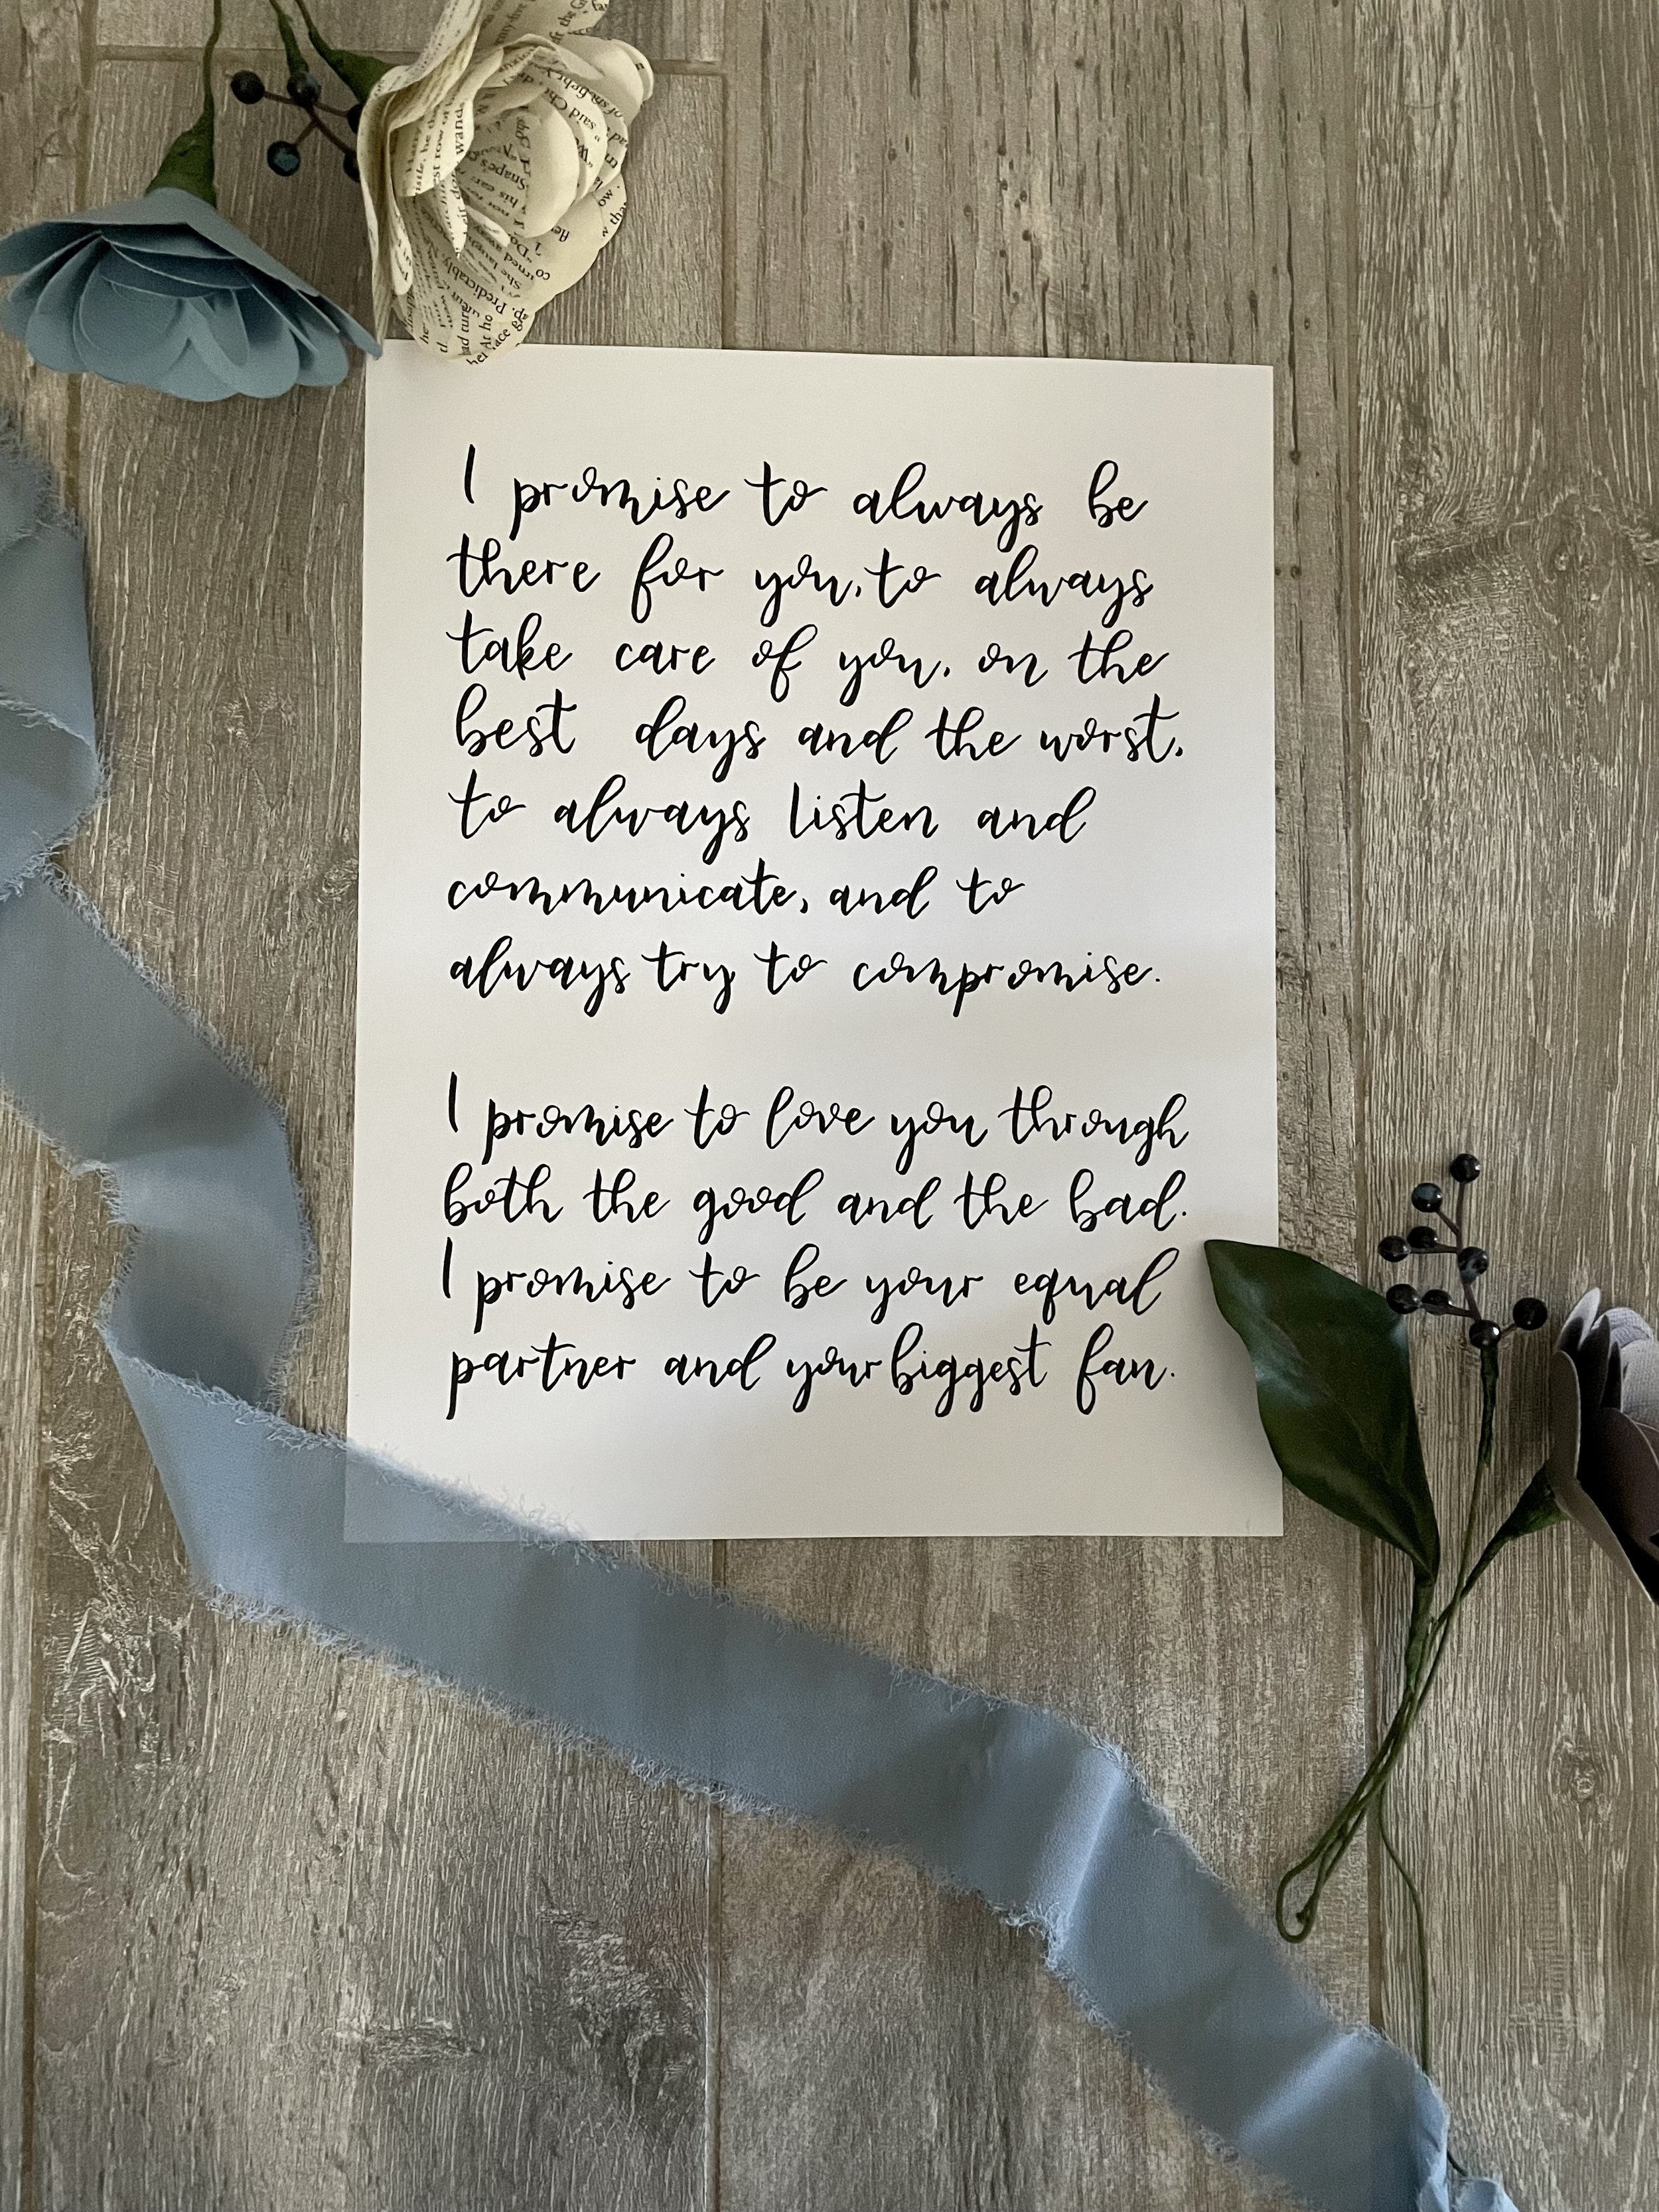 I promise to always be
there for you, to always
take care of you, on the
best days and the worst,
to always listen and
communicate, and to
always try to compromise.
I promise to love you through
both the good and the bad.
I promise to be your equal
partner and your biggest fan.
said
wand
Snapes
his ear
Predictably
She
At ho